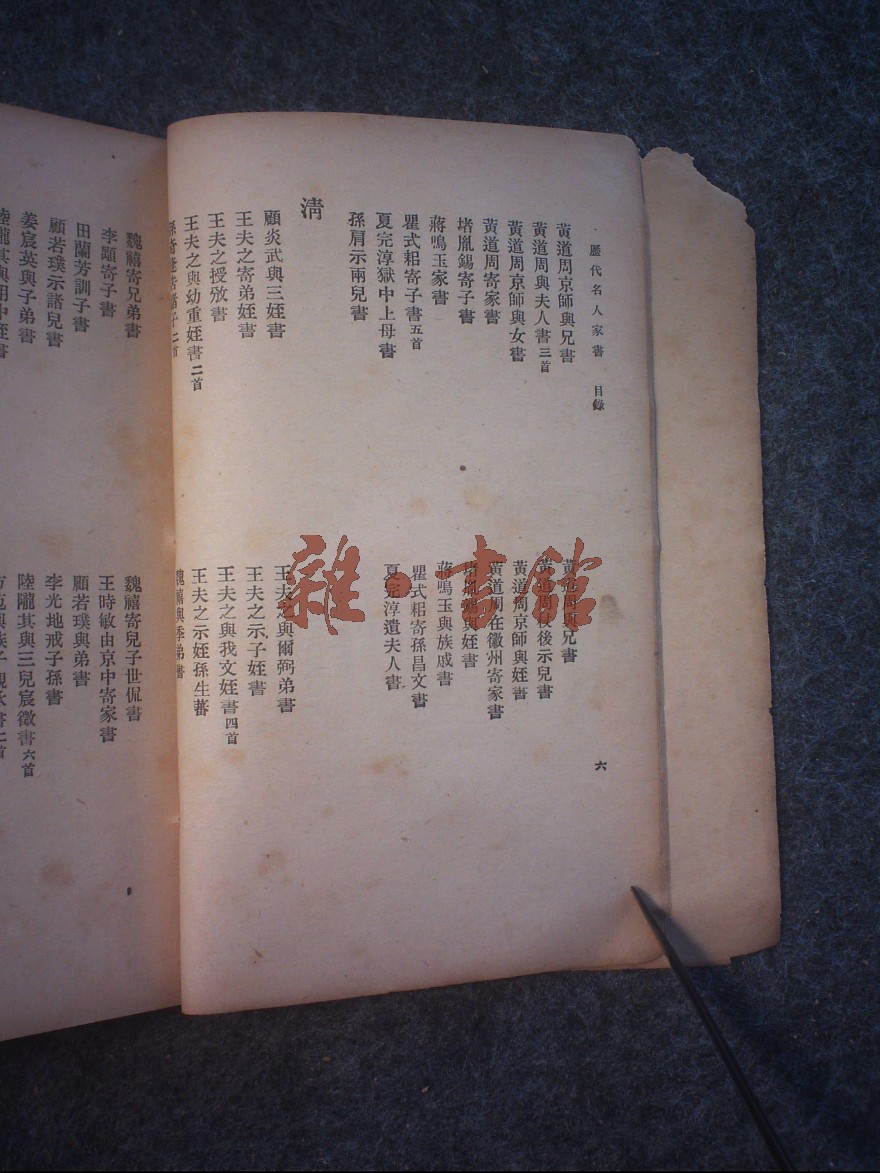 歷代名人家書　目錄
六
黃道周京師與兄書
黃道周與夫人書三首
黃道周京師與女書
黃道周寄家書
堵胤錫寄子書
蔣鳴玉家書
瞿式耜寄子書五首
夏完淳獄中上母書
孫肩示兩兒書
黃道周與兄書
後示兒書
黃道周京師與姪書
黃道周在徽州寄家書
堵胤錫與姪書
蔣鳴玉與族戚書
瞿式耜寄孫昌文書
夏完淳遺夫人書
清
顧炎武與三姪書
王夫之寄弟姪書
王夫之授攽書
王夫之與幼重姪書二首
王夫之與爾弼弟書
王夫之示子姪書
王夫之與我文姪書四首
王夫之示姪孫生蕃
魏禧與季弟書
魏禧寄兄弟書
李顒寄子書
田蘭芳訓子書
顧若璞示諸兒書
姜宸英與子弟書
魏禧寄兒子世侃書
王時敏由京中寄家書
顧若璞與弟書
李光地戒子孫書
陸隴其與三兒宸徵書六首
雜·書館